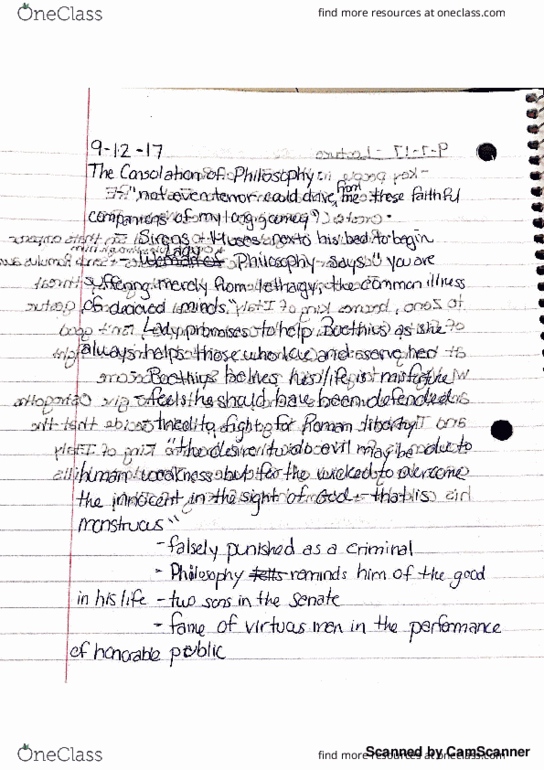 OneClass
find more resources at oneclass.com
9-12-17
The Consolation of Philosophy:
"not even terror could drive from me these faithful
companions of my long journey"
Sirens & Muses next to his bed to begin
Lady
Philosophy says "you are
suffering merely from lethargy, the common illness
of deceived minds."
Lady promises to help Boethius as she
always helps those who love and her
Boethius his life is
feels he should have been defended
tried to fight for Roman liberty
"the desire to do evil may be due to
human weakness but for the wicked to overcome
the innocent in the sight of God - that is
monstrous"
- falsely punished as a criminal
- Philosophy reminds him of the good
in his life - two sons in the senate
- fame of virtuas men in the performance
of honorable public
OneClass
find more resources at oneclass.com
Scanned by CamScanner